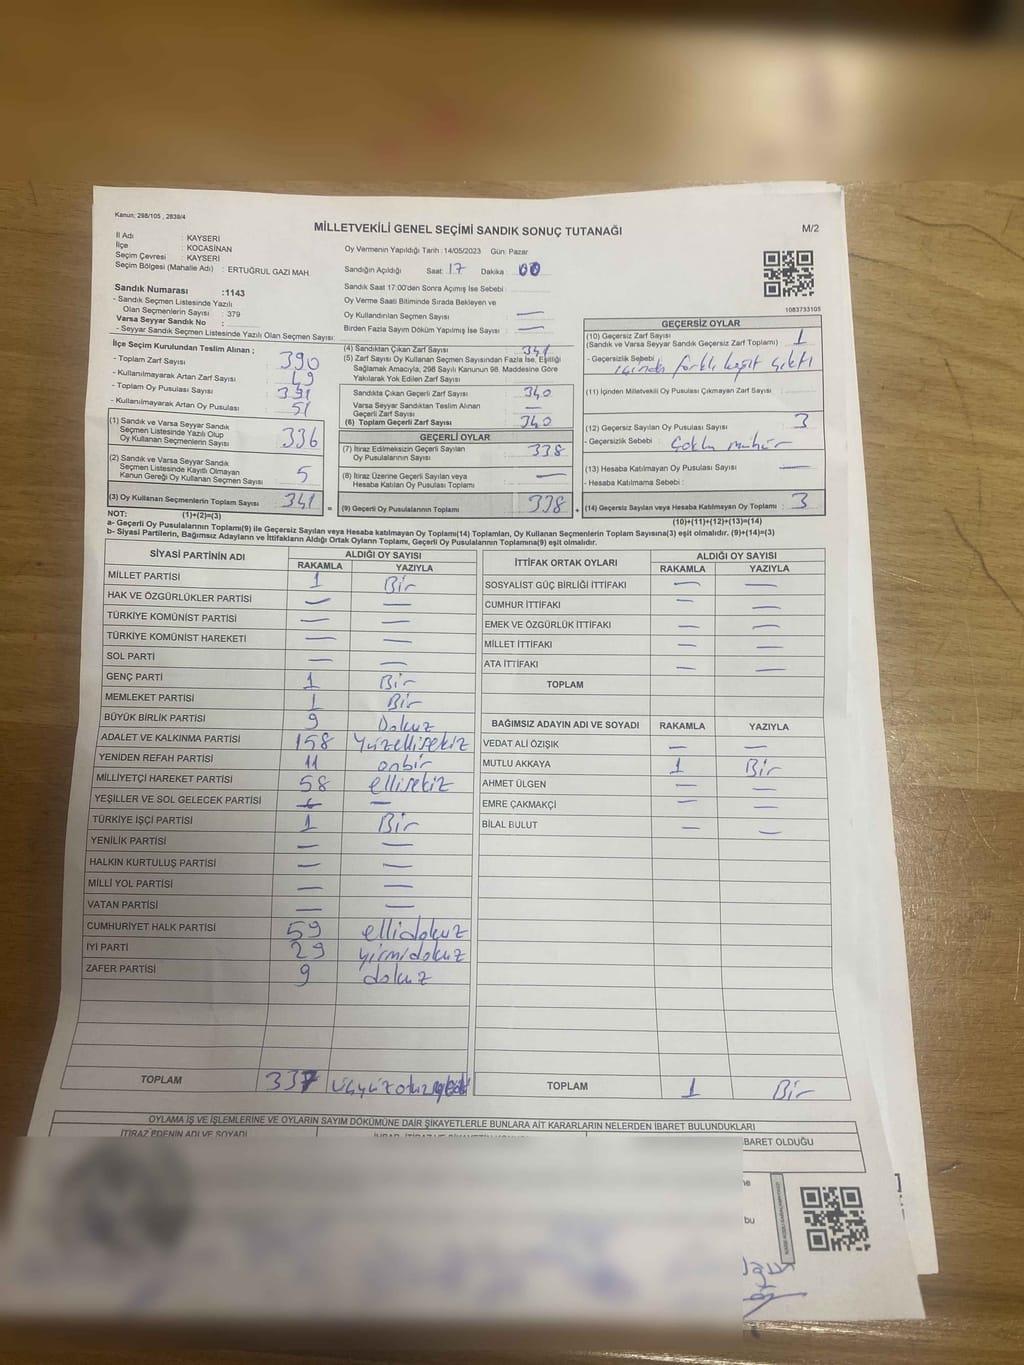 Kanun: 298/105 , 2839/4
MİLLETVEKİLİ GENEL SEÇİMİ SANDIK SONUÇ TUTANAĞI
M/2
İl Adı : KAYSERİ
İlçe : KOCASİNAN
Seçim Çevresi : KAYSERİ
Seçim Bölgesi (Mahalle Adı) : ERTUĞRUL GAZİ MAH.
Sandık Numarası :1143
- Sandık Seçmen Listesinde Yazılı
Olan Seçmenlerin Sayısı : 379
Varsa Seyyar Sandık No :
- Seyyar Sandık Seçmen Listesinde Yazılı Olan Seçmen Sayısı:
Oy Vermenin Yapıldığı Tarih :14/05/2023 Gün: Pazar
Sandığın Açıldığı Saat: 17 Dakika : 00
Sandık Saat 17:00'den Sonra Açımış İse Sebebi :
Oy Verme Saati Bitiminde Sırada Bekleyen ve
Oy Kullandırılan Seçmen Sayısı : —
Birden Fazla Sayım Döküm Yapılmış İse Sayısı : —
1083733105
İlçe Seçim Kurulundan Teslim Alınan ;
- Toplam Zarf Sayısı : 390
- Kullanılmayarak Artan Zarf Sayısı : 49
- Toplam Oy Pusulası Sayısı : 391
- Kullanılmayarak Artan Oy Pusulası : 51
(1) Sandık ve Varsa Seyyar Sandık
Seçmen Listesinde Yazılı Olup
Oy Kullanan Seçmenlerin Sayısı : 336
(2) Sandık ve Varsa Seyyar Sandık
Seçmen Listesinde Kayıtlı Olmayan
Kanun Gereği Oy Kullanan Seçmen Sayısı : 5
(3) Oy Kullanan Seçmenlerin Toplam Sayısı : 341
(4) Sandıktan Çıkan Zarf Sayısı : 341
(5) Zarf Sayısı Oy Kullanan Seçmen Sayısından Fazla İse, Eşitliği
Sağlamak Amacıyla, 298 Sayılı Kanunun 98. Maddesine Göre
Yakılarak Yok Edilen Zarf Sayısı :
Sandıkta Çıkan Geçerli Zarf Sayısı : 340
Varsa Seyyar Sandıktan Teslim Alınan
Geçerli Zarf Sayısı : —
(6) Toplam Geçerli Zarf Sayısı : 340
GEÇERLİ OYLAR
(7) İtiraz Edilmeksizin Geçerli Sayılan
Oy Pusulalarının Sayısı : 338
(8) İtiraz Üzerine Geçerli Sayılan veya
Hesaba Katılan Oy Pusulası Toplamı : —
= (9) Geçerli Oy Pusulalarının Toplamı : 338 +
GEÇERSİZ OYLAR
(10) Geçersiz Zarf Sayısı
(Sandık ve Varsa Seyyar Sandık Geçersiz Zarf Toplamı) : 1
- Geçersizlik Sebebi : içinden farklı kağıt çıktı
(11) İçinden Milletvekili Oy Pusulası Çıkmayan Zarf Sayısı :
(12) Geçersiz Sayılan Oy Pusulası Sayısı : 3
- Geçersizlik Sebebi : Çoklu mühür
(13) Hesaba Katılmayan Oy Pusulası Sayısı : —
- Hesaba Katılmama Sebebi :
(14) Geçersiz Sayılan veya Hesaba Katılmayan Oy Toplamı : 3
NOT: (1)+(2)=(3)
(10)+(11)+(12)+(13)=(14)
a- Geçerli Oy Pusulalarının Toplamı(9) ile Geçersiz Sayılan veya Hesaba katılmayan Oy Toplamı(14) Toplamları, Oy Kullanan Seçmenlerin Toplam Sayısına(3) eşit olmalıdır. (9)+(14)=(3)
b- Siyasi Partilerin, Bağımsız Adayların ve İttifakların Aldığı Ortak Oyların Toplamı, Geçerli Oy Pusulalarının Toplamına(9) eşit olmalıdır.
SİYASİ PARTİNİN ADI ALDIĞI OY SAYISI
RAKAMLA YAZIYLA
MİLLET PARTİSİ 1 Bir
HAK VE ÖZGÜRLÜKLER PARTİSİ — —
TÜRKİYE KOMÜNİST PARTİSİ — —
TÜRKİYE KOMÜNİST HAREKETİ — —
SOL PARTİ — —
GENÇ PARTİ 1 Bir
MEMLEKET PARTİSİ 1 Bir
BÜYÜK BİRLİK PARTİSİ 9 Dokuz
ADALET VE KALKINMA PARTİSİ 158 Yüzellisekiz
YENİDEN REFAH PARTİSİ 11 onbir
MİLLİYETÇİ HAREKET PARTİSİ 58 ellisekiz
YEŞİLLER VE SOL GELECEK PARTİSİ — —
TÜRKİYE İŞÇİ PARTİSİ 1 Bir
YENİLİK PARTİSİ — —
HALKIN KURTULUŞ PARTİSİ — —
MİLLİ YOL PARTİSİ — —
VATAN PARTİSİ — —
CUMHURİYET HALK PARTİSİ 59 ellidokuz
İYİ PARTİ 29 yirmidokuz
ZAFER PARTİSİ 9 dokuz
TOPLAM 337
İTTİFAK ORTAK OYLARI ALDIĞI OY SAYISI
RAKAMLA YAZIYLA
SOSYALİST GÜÇ BİRLİĞİ İTTİFAKI — —
CUMHUR İTTİFAKI — —
EMEK VE ÖZGÜRLÜK İTTİFAKI — —
MİLLET İTTİFAKI — —
ATA İTTİFAKI — —
TOPLAM
BAĞIMSIZ ADAYIN ADI VE SOYADI RAKAMLA YAZIYLA
VEDAT ALİ ÖZIŞIK — —
MUTLU AKKAYA 1 Bir
AHMET ÜLGEN — —
EMRE ÇAKMAKÇİ — —
BİLAL BULUT — —
TOPLAM 1 Bir
OYLAMA İŞ VE İŞLEMLERİNE VE OYLARIN SAYIM DÖKÜMÜNE DAİR ŞİKAYETLERLE BUNLARA AİT KARARLARIN NELERDEN İBARET BULUNDUKLARI
İTİRAZ EDENİN ADI VE SOYADI
BARET OLDUĞU
bu